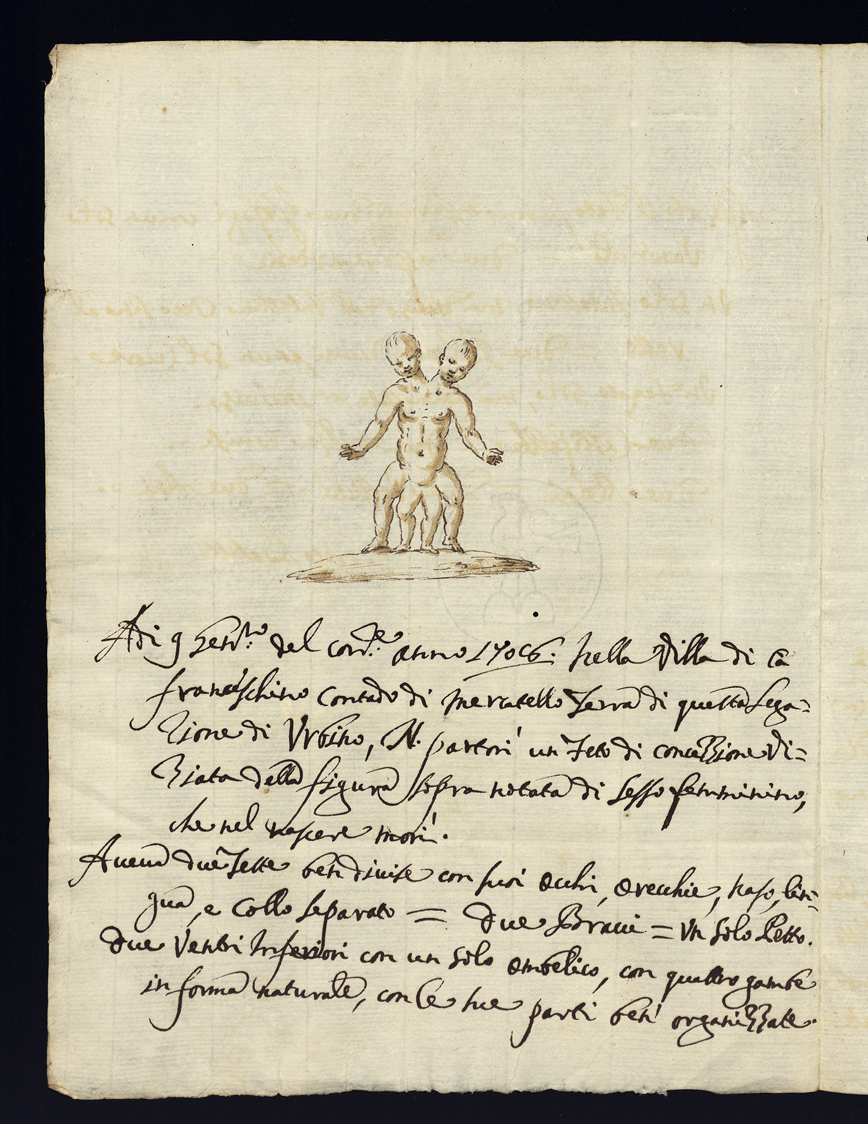 Adi 9 Genn.ro del corr.e anno 1706: nella Villa di Cà
franceschino Contado di Mercatello Terra di questa Lega=
zione di Urbino, N. partorì un Feto di concezzione Vi=
ziata della figura sopra notata di sesso femminino,
che nel nascere morì.
Aveva due Teste ben divise con suoi occhi, orecchie, naso, lin=
gua, e Collo separato = due Bracci = un solo Petto.
due Ventri Inferiori con un solo ombelico, con quattro gambe
in forma naturale, con le sue parti ben organizzate.